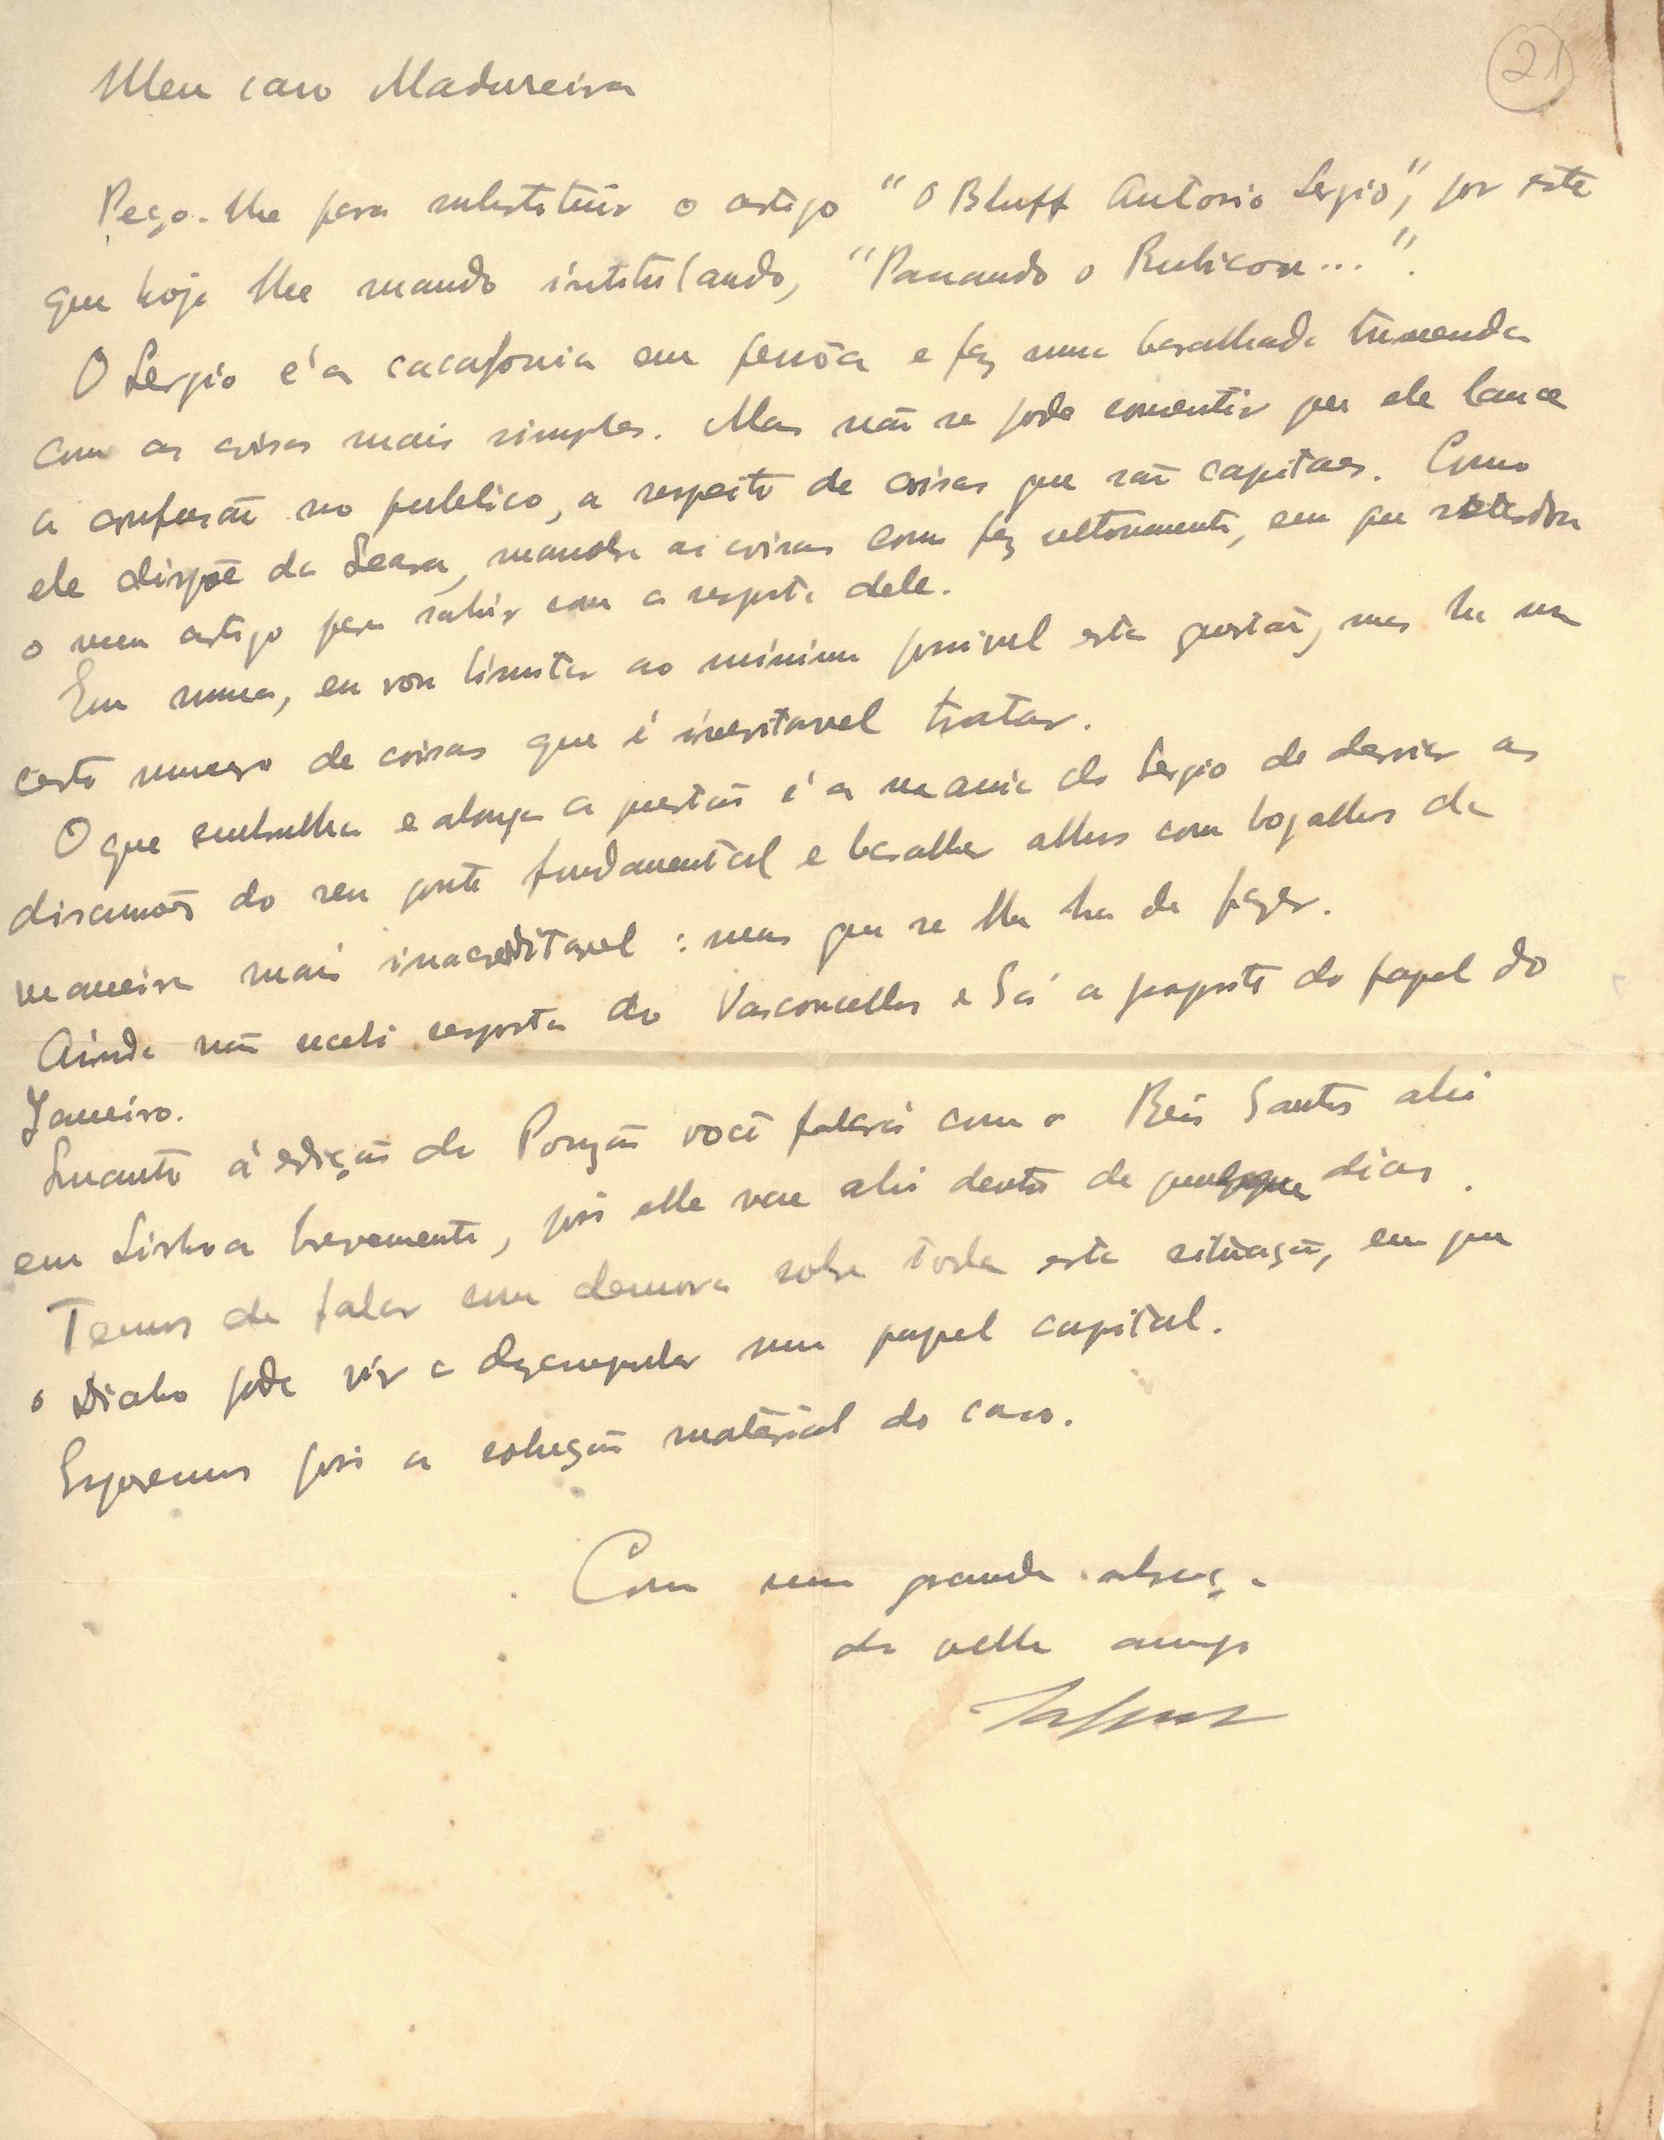 21
Meu caro Madureira
Peço-lhe para substituir o artigo "O Bluff Antonio Sergio", por este
que hoje lhe mando intitulando, "Passando o Rubicon...".
O Sergio é a cacafonia em pessôa e faz uma baralhada tremenda
com as coisas mais simples. Mas não se pode consentir que ele lance
a confusão no publico, a respeito de coisas que são capitaes. Como
ele dispõe da Seara, manobra as coisas como fez ultimamente, em que
o meu artigo para sahir com a resposta dele.
Em suma, eu vou limitar ao minimo possivel esta questão, mas ha um
certo numero de coisas que é inevitavel tratar.
O que embrulha e alonga a questão é a mania do Sergio de desviar as
discussões do seu ponto fundamental e baralhar alhos com bogalhos da
maneira mais inacreditavel: mas que se lhe ha de fazer.
Ainda não recebi resposta do Vasconcellos e Sá a proposito do papel do
Janeiro.
Quanto á edição do você falará com o Reis Santos ahi
em Lisboa brevemente, pois elle vae ahi dentro de dias.
Temos de falar com demora sobre toda esta situação, em que
o Diabo pode vir a dezempenhar um papel capital.
Esperemos pois a solução material do caso.
Com um grande abraço
do velho amigo